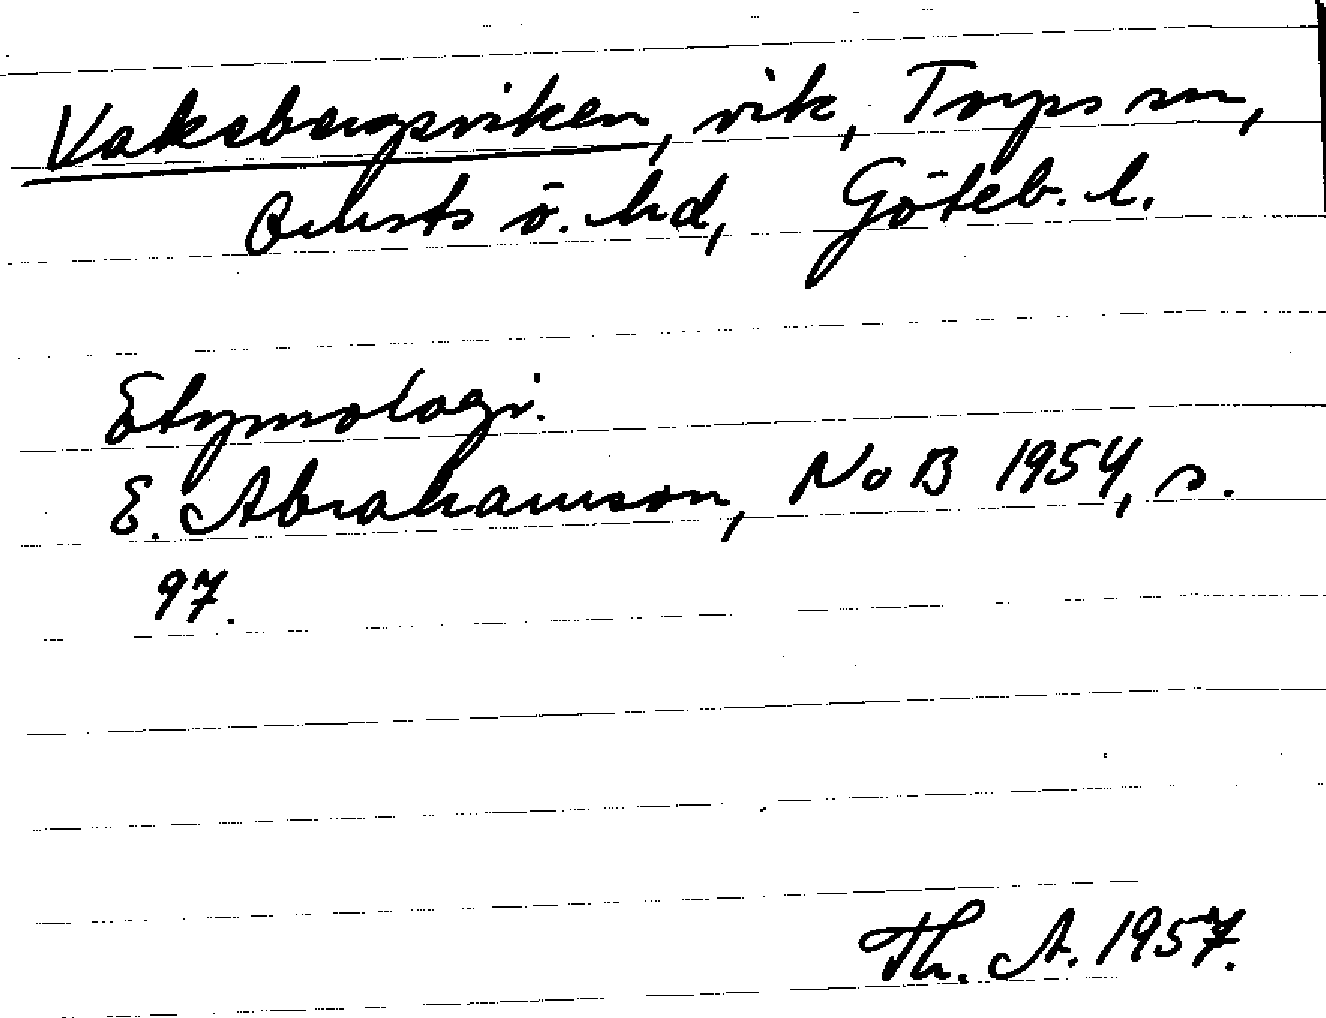 Vaksbergsviken, vik, Torps sn,
Orusts ö. hd, Göteb. l.
Etymologi.
E. Abrahamson, NoB 1954, s.
97.
Th. A. 1957.